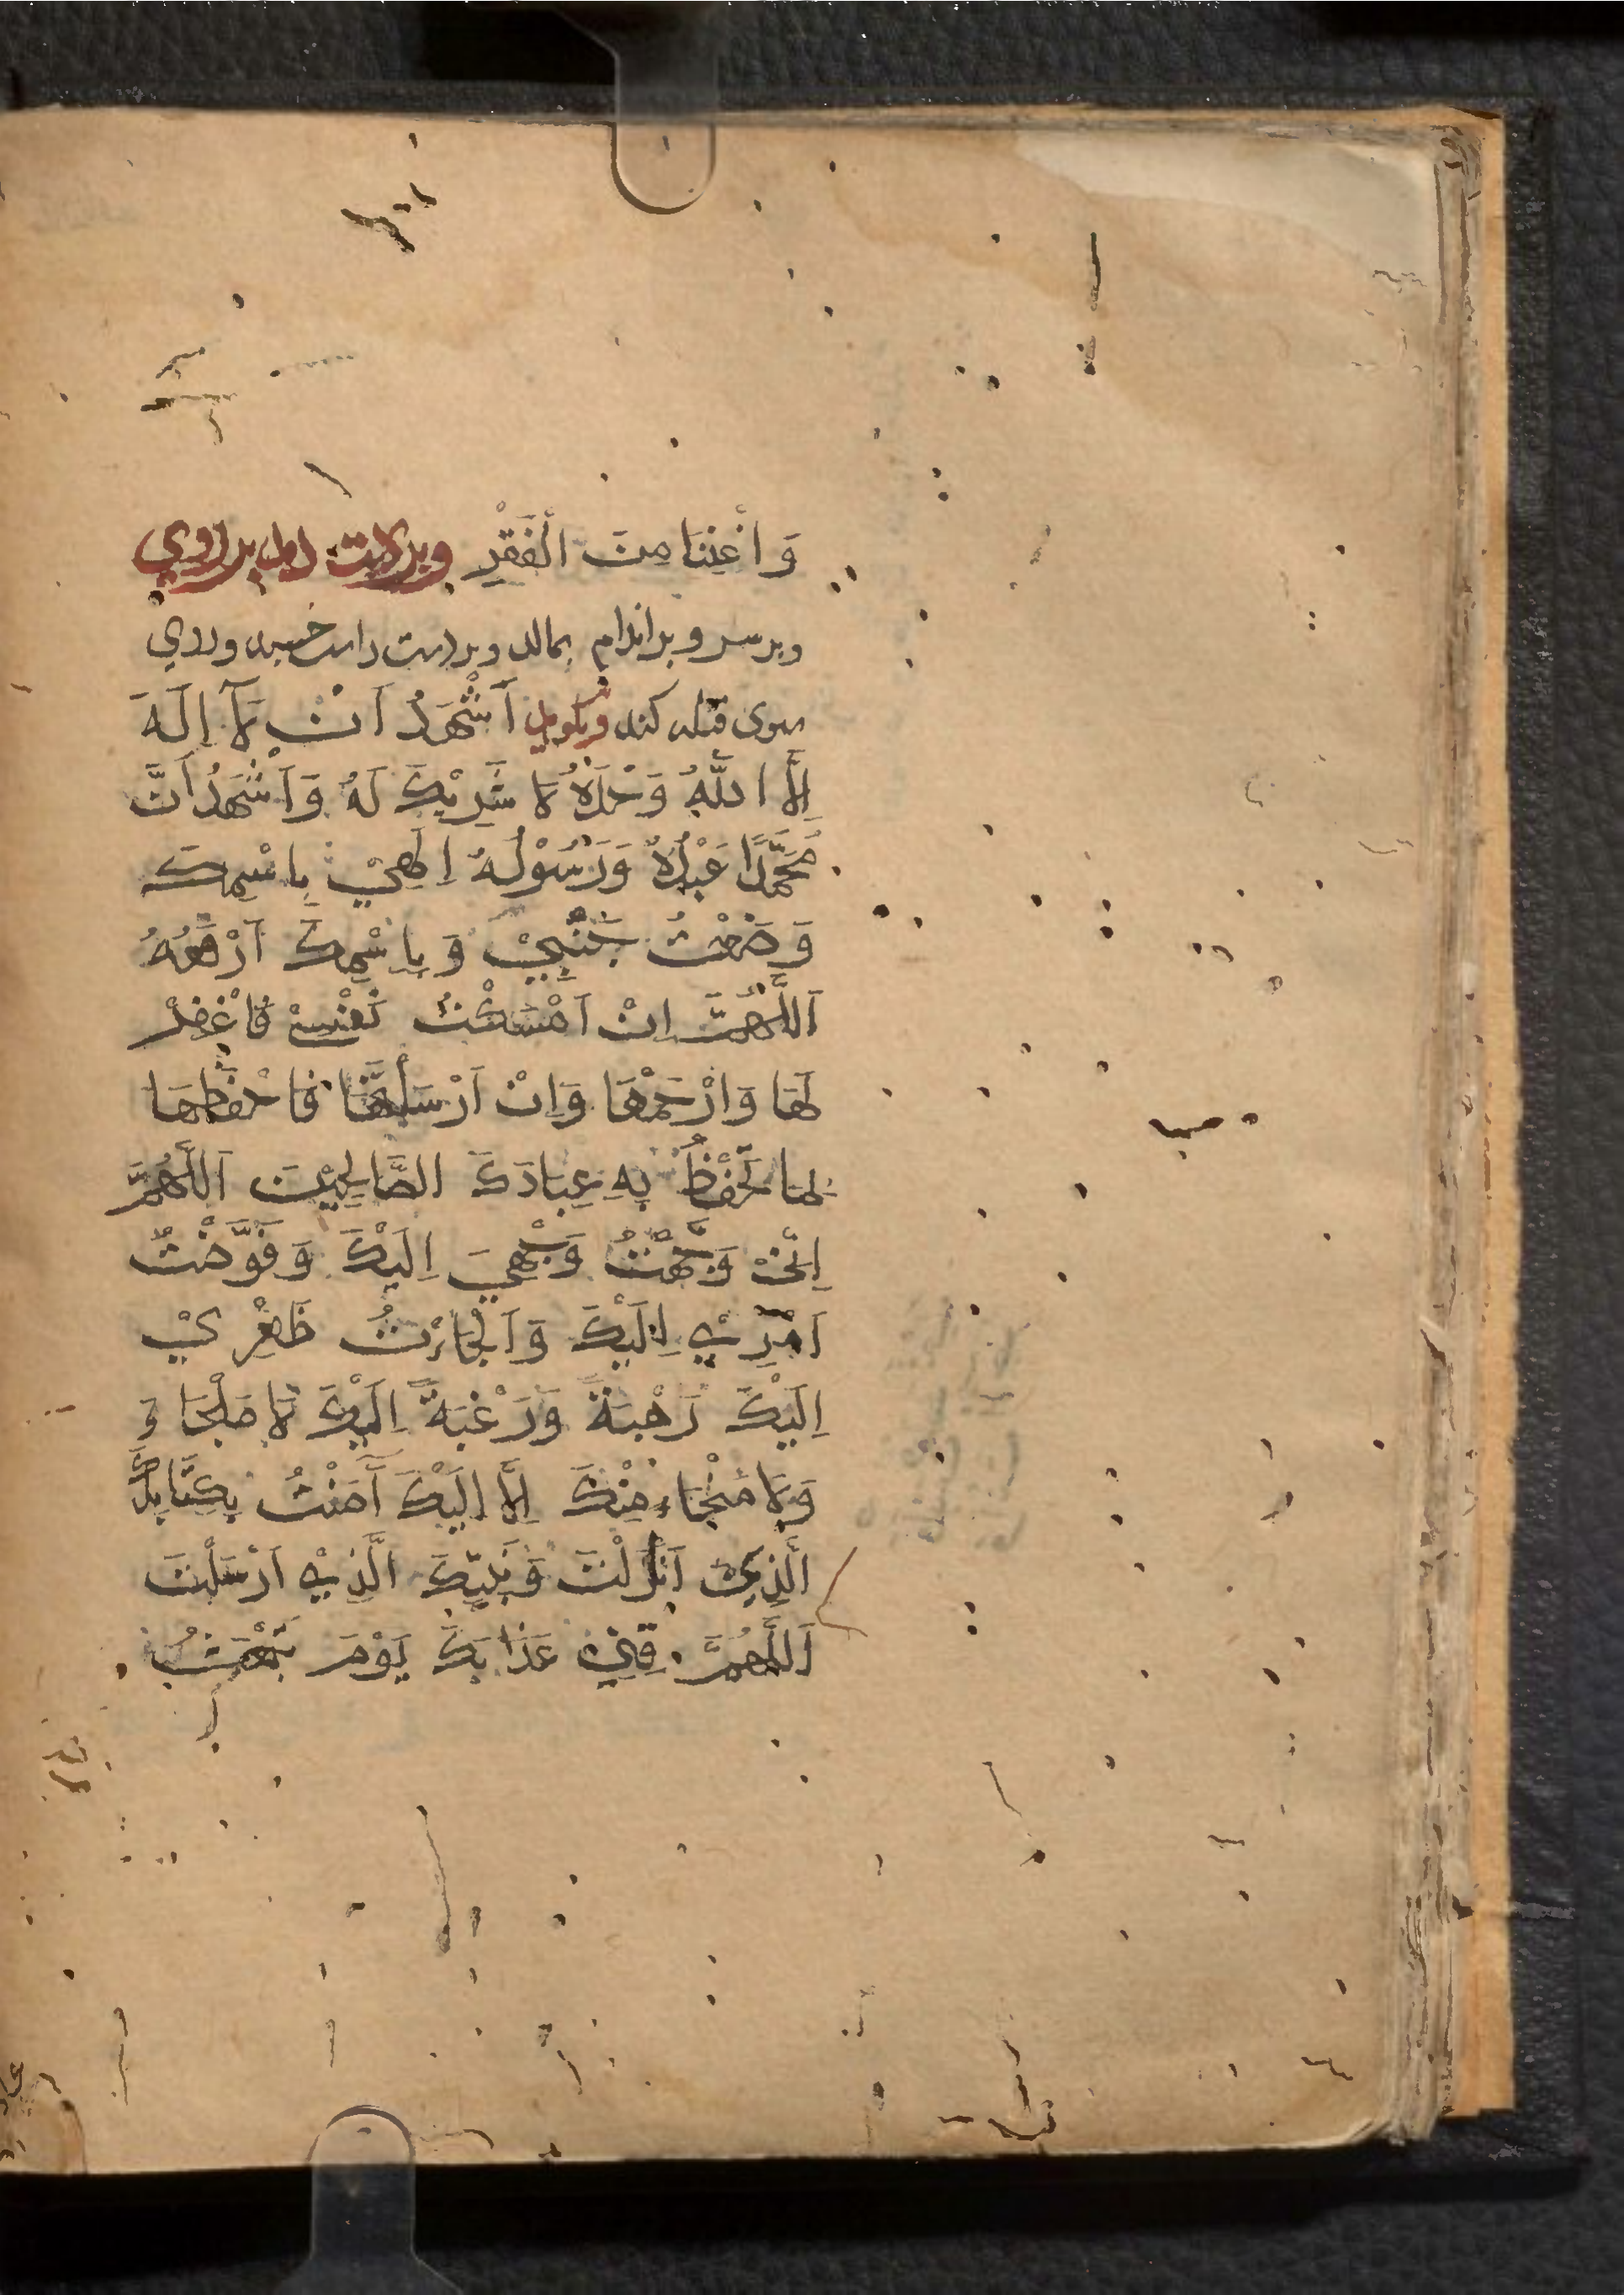 وَ اَغْنِنَا مِنَ الْفَقْرِ وبر کف دست اول بر روي
وبر سر و بر اندام بمالد و بر دست راست خسپد و روي
سوی قبله کند و بگويد اَشْهَدُ اَنْ لَآ اِلَهَ
اِلَّا اللَّهُ وَحْدَهُ لَا شَرِيْكَ لَهُ وَاَشْهَدُ اَنَّ
مُحَمَّدًا عَبْدُهُ وَرَسُوْلُهُ اِلَهِيْ بِاسْمِكَ
وَضَعْتُ جَنْبِيْ وَبِاسْمِكَ اَرْفَعُهُ
اَللَّهُمَّ اِنْ اَمْسَكْتَ نَفْسِيْ فَاغْفِرْ
لَهَا وَارْحَمْهَا وَاِنْ اَرْسَلْتَهَا فَاحْفَظْهَا
بما تَحْفَظُ بِهِ عِبَادَكَ الصَّالِحِيْنَ اَللَّهُمَّ
اِنِّيْ وَجَّهْتُ وَجْهِيَ اِلَيْكَ وَفَوَّضْتُ
اَمْرِيْ اِلَيْكَ وَاَلْجَاءْتُ ظَهْرِيْ
اِلَيْكَ رَهْبَةً وَرَغْبَةً اِلَيْكَ لَا مَلْجَا وَ
وَلَا مَنْجَاءَ مِنْكَ اِلَّا اِلَيْكَ آمَنْتُ بِكِتَابِكَ
الَّذِيْ اَنْزَلْتَ وَنَبِيِّكَ الَّذِيْ اَرْسَلْتَ
اَللَّهُمَّ قِنِيْ عَذَابَكَ يَوْمَ تَبْعَثُ